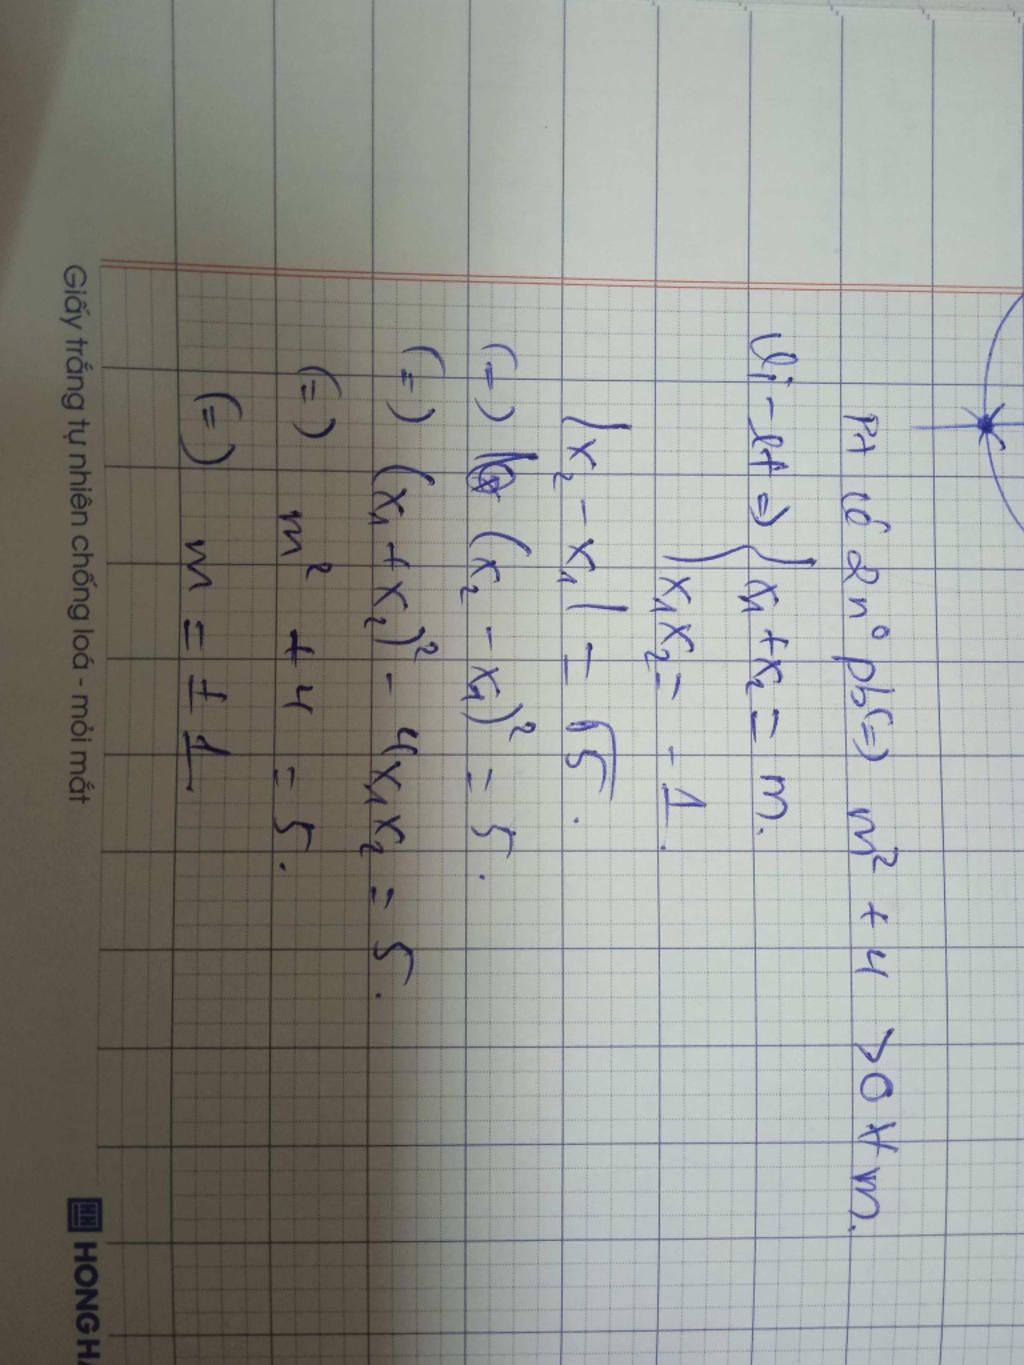 Pt có 2 n° pb (=) m² + 4 > 0 ∀ m.
Vi-ét => { x₁ + x₂ = m.
x₁x₂ = -1.
|x₂ - x₁| = √5.
(=) (x₂ - x₁)² = 5.
(=) (x₁ + x₂)² - 4x₁x₂ = 5.
(=) m² + 4 = 5.
(=) m = ± 1
Giấy trắng tự nhiên chống loá - mỏi mắt
HONG HA